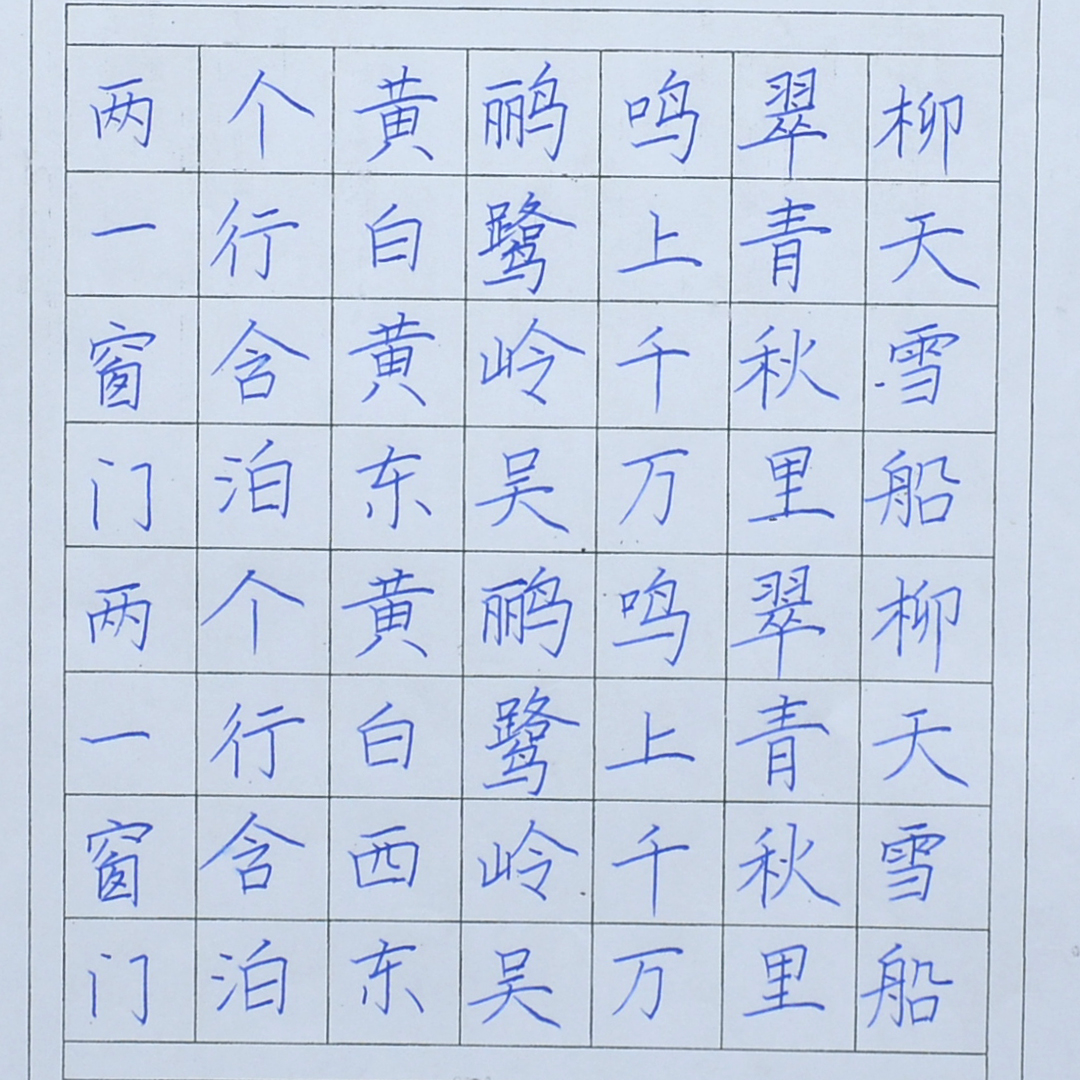 两个黄鹂鸣翠柳
一行白鹭上青天
窗含黄岭千秋雪
门泊东吴万里船
两个黄鹂鸣翠柳
一行白鹭上青天
窗含西岭千秋雪
门泊东吴万里船